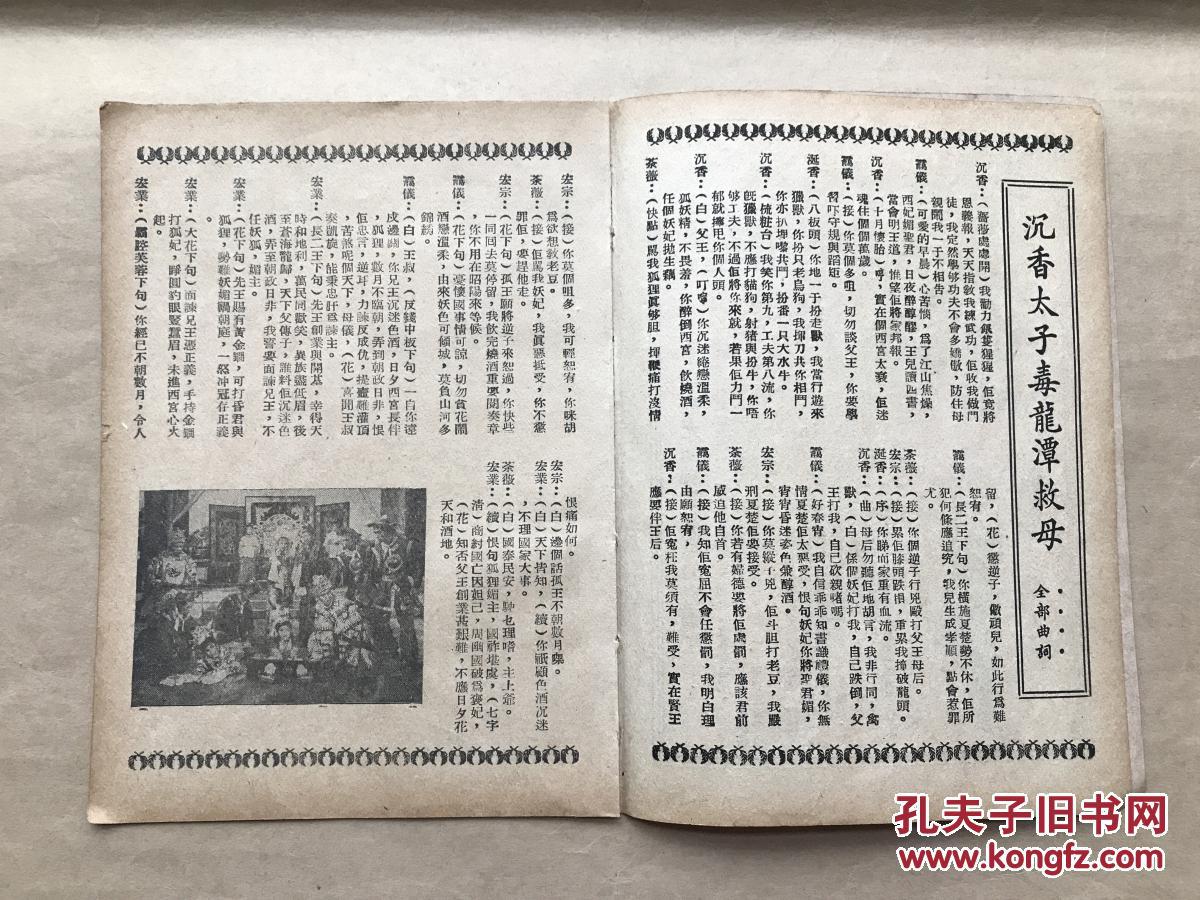 沉香太子毒龍潭救母
全部曲詞
沉香：（薔薇處處開）我勸力銀隻猩猩，佢竟將
恩義報，天天指敎我練武功，佢收我做門
徒，我定然學够功夫不會多嬌傲，防住母
親鬧我一于不相告。
靄儀：（可愛的早晨）心苦惱，爲了江山焦燥，
西妃媚聖君，日夜醉醇醪，王兒讀四書，
當會明王道，惟望佢將家邦報。
沉香：（十月懷胎）哼，實在個西宮太衰，佢迷
魂住個個萬歲。
靄儀：（接）你莫個多咀，切勿談父王，你要學
習吓守規與蹈矩。
涎香：（八板頭）你地一于扮走獸，我當行遊來
獵獸，你扮只老烏狗，我揮刀共你相鬥，
你亦扒埋嚟共鬥，扮番一只大水牛。
沉香：（梳粧台）我笑你第九，工夫第八流，你
旣獵獸，不應打貓狗，射猪與扮牛，你唔
够工夫，不過佢將你來就，若果佢力鬥一
郁就攞咜你個人頭。
沉香：（白）父王，（叮嚀）你沉迷綣戀溫柔，
狐妖精，不畏羞，你醉倒西宮，飲燒酒，
任個妖妃拋生藕。
荼薇：（快點）罵我狐狸眞够胆，揮鞭痛打沒情
留，（花）懲逆子，儆頑兒，如此行爲難
恕宥。
靄儀：（長二王下句）你橫施夏楚勢不休，佢所
犯何條應追究，我兒生成孝順，點會惹罪
尤。
荼薇：（接）你個逆子行兇毆打父王母后。
宏宗：（接）累佢膝頭跌損，重累我撞破龍頭。
涎香：（序）你睇而家重有血流。
沉香：（曲）母后勿聽佢地胡言，我非行同，禽
獸，（白）係個妖妃打我，自己跌倒，父
王打我，自己砍親啫嗎。
靄儀：（好春宵）我自信乖乖知書識禮儀，你無
情夏楚佢太慘受，恨句妖妃你將聖君媚，
宵宵昏迷姿色兼醇酒。
宏宗：（接）你莫縱子兇，佢斗胆打老豆，我嚴
刑夏楚佢要接受。
荼薇：（接）你若有婦德要將佢處罰，應該君前
威迫他自首。
靄儀：（接）我知佢寃屈不會任懲罰，我明白理
由願恕宥。
沉香：（接）佢寃枉我莫須有，難受，實在賢王
應要伴王后。
宏宗：（接）你莫個咀多，我可輕恕宥，你咪胡
爲欲想救老豆。
荼薇：（接）佢罵我妖妃，我眞難抵受，你不懲
罪佢，要趕他走。
宏宗：（花下句）孤王願將逆子來恕過，你快些
一同回去莫停留，我飲完燒酒重要閱奏章
，你不用在昭陽來等候。
靄儀：（花下句）憂懷國事情可諒，切勿貪花閙
酒戀溫柔，由來妖色可傾城，莫負山河多
錦綉。
靄儀：（白）王叔，（反綫中板下句）一自你遠
戍邊關，你兄王沉迷色酒，日夕西宮長伴
，狐狸，數月不臨朝，弄到朝政日非，恨
佢忠言，逆耳，力諫反成仇，提壺難灌頂
，苦煞呢個天下，母儀，（花）喜聞王叔
奏凱旋，能秉忠肝爲主。
宏業：（長二王下句）先王創業與開基，幸得天
時和地利，萬民同歡笑，異族盡低眉，後
至蒼海龍歸，天下父傳子，誰料佢沉迷色
酒，弄至朝政日非，我誓要面諫兄王，不
任妖狐，媚主。
宏業：（花下句）先王賜有黃金鐧，可打昏君與
狐狸，勢難妖媚禍朝庭，一怒冲冠存正義
。
宏業：（大花下句）面諫兄王憑正義，手持金鐧
打狐妃，睜圓豹眼竪蠶眉，未進西宮心火
起。
宏業：（霸腔芙蓉下句）你經已不朝數月，令人
恨痛如何。
宏宗：（白）邊個話孤王不朝數月㗎。
宏業：（白）天下皆知，（續）你祇顧色酒沉迷
，不理國家大事。
荼薇：（白）國泰民安，馳乜理嗜，主上爺。
宏業：（續）恨句狐狸媚主，國祚堪虞，（七字
淸）商紂國亡因妲已，周幽國破爲褒妃，
（花）知否父王創業甚艱難，不應日夕花
天和酒地。
孔夫子旧书网
www.kongfz.com